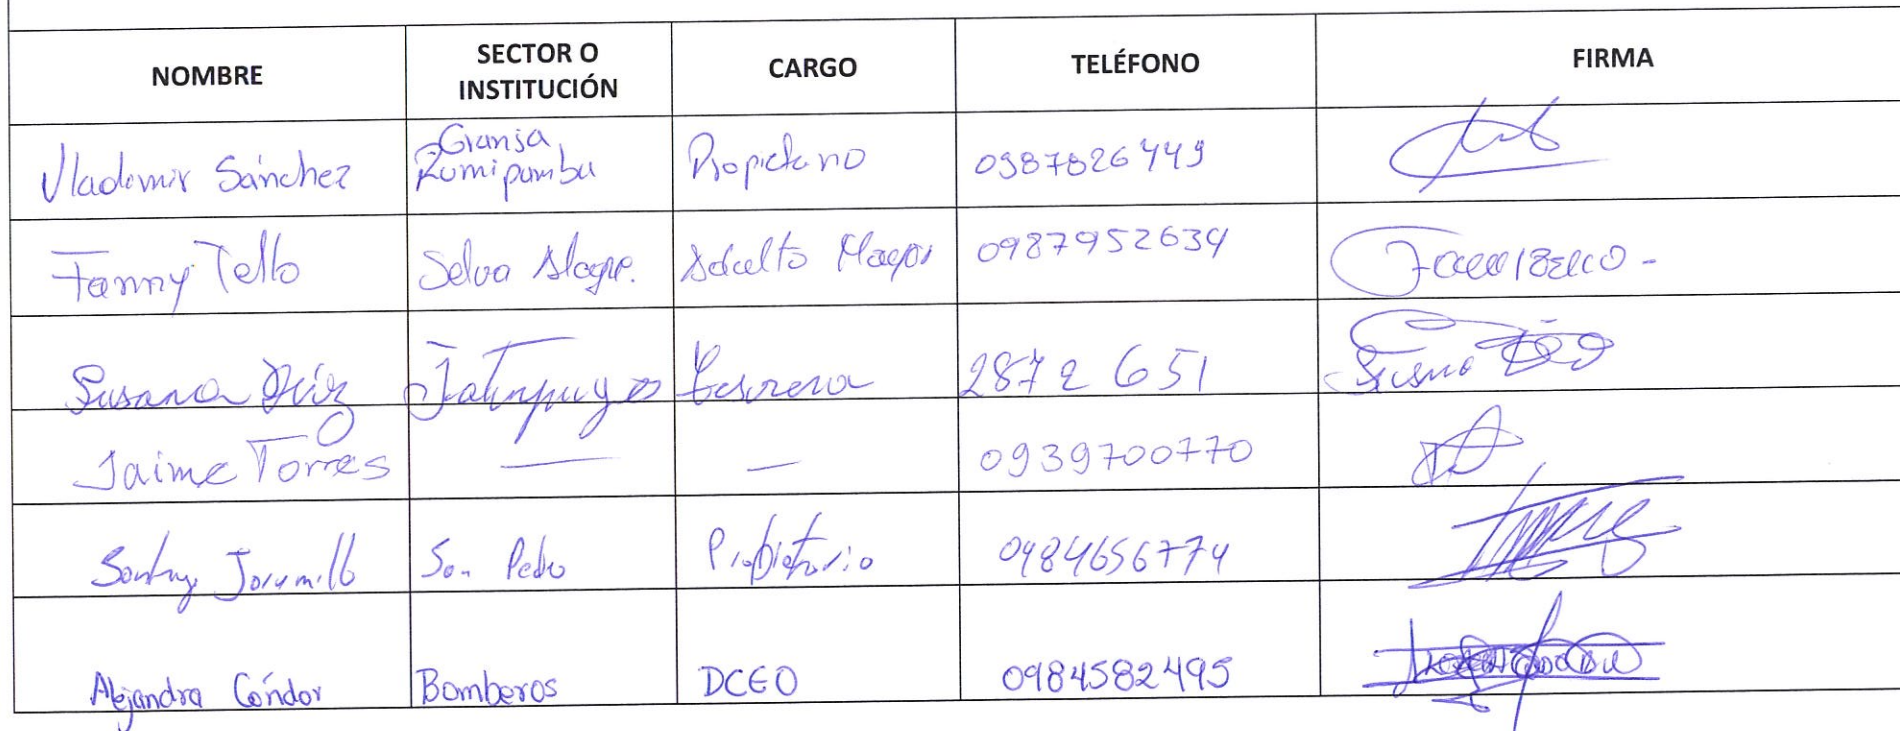 NOMBRE SECTOR O INSTITUCIÓN CARGO TELÉFONO FIRMA
Vladimir Sánchez Granja Rumipamba Propietario 0987826449
Fanny Tello Selva Alegre. Adulto Mayor 0987952634
Susana Díaz Tesorera 2872651
Jaime Torres — — 0939700770
Santiago Jaramillo San Pedro Propietario 0984656774
Alejandra Cóndor Bomberos DCEO 0984582495